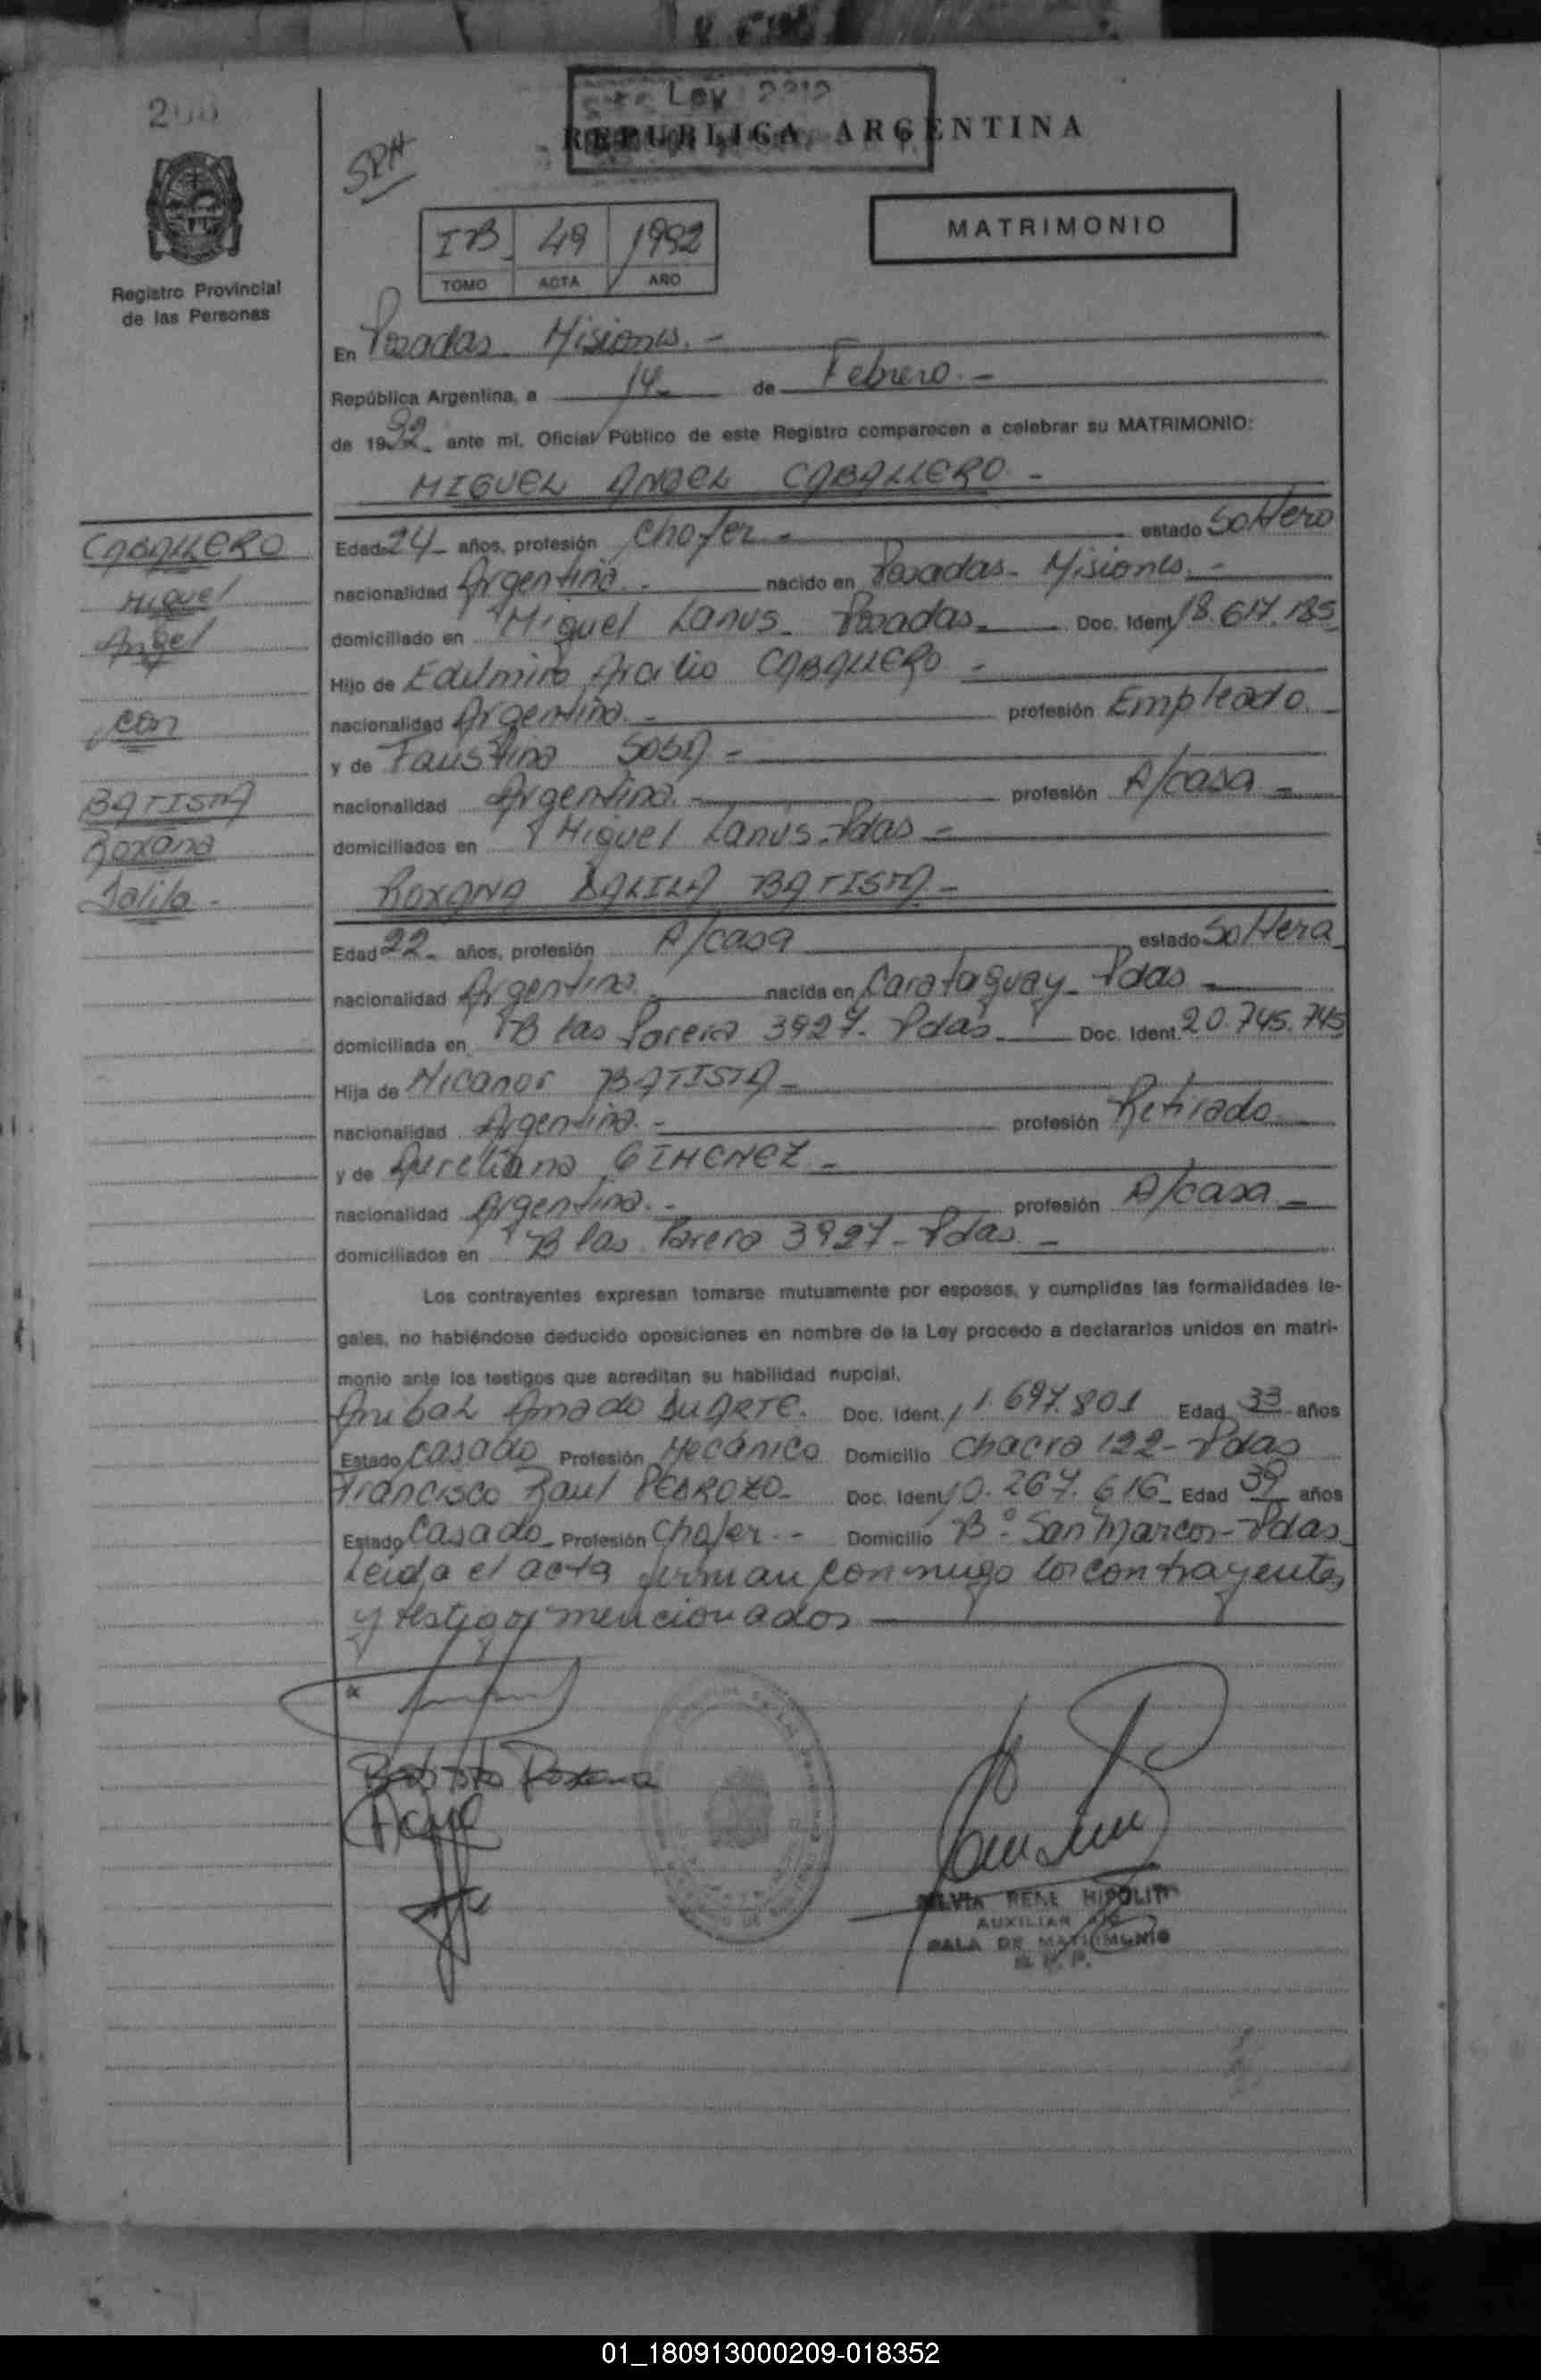 200
Ley 2212
REPUBLICA ARGENTINA
SRH
MATRIMONIO
IB 49 1992
TOMO ACTA AÑO
Registro Provincial
de las Personas
En Posadas Misiones.-
República Argentina, a 14 de Febrero.-
de 1992 ante mí, Oficial Público de este Registro comparecen a celebrar su MATRIMONIO:
MIGUEL ANGEL CABALLERO.-
CABALLERO
Miguel
Angel
con
BATISTA
Roxana
Dalila.-
Edad 24 años, profesión Chofer.- estado Soltero
nacionalidad Argentina.- nacido en Posadas- Misiones.-
domiciliado en Miguel Lanus- Posadas.- Doc. Ident. 18.617.185
Hijo de Edelmiro CABALLERO.-
nacionalidad Argentina.- profesión Empleado.
y de Faustina SOSA.-
nacionalidad Argentina.- profesión A/casa.-
domiciliados en Miguel Lanus-Pdas.-
ROXANA DALILA BATISTA.-
Edad 22.- años, profesión A/casa estado Soltera
nacionalidad Argentina.- nacida en Garataguay- Pdas.-
domiciliada en B las Parera 3927- Pdas.- Doc. Ident. 20.745.745
Hija de Nicanor BATISTA.-
nacionalidad Argentina.- profesión Retirado
y de Aureliana GIMENEZ.-
nacionalidad Argentina.- profesión A/casa.-
domiciliados en B las Parera 3927-Pdas.-
Los contrayentes expresan tomarse mutuamente por esposos, y cumplidas las formalidades le-
gales, no habiéndose deducido oposiciones en nombre de la Ley procedo a declararlos unidos en matri-
monio ante los testigos que acreditan su habilidad nupcial.
Anibal Amado DUARTE. Doc. Ident. 11.697.801 Edad 33 años
Estado Casado Profesión Mecánico Domicilio Chacra 122-Pdas
Francisco Raul PEDROZO- Doc. Ident. 10.267.616 Edad 39 años
Estado Casado- Profesión Chofer.- Domicilio B° San Marcos-Pdas
Leida el acta firman conmigo los contrayentes
y testigos mencionados
Batista Roxana
SILVIA RENE HIPOLITO
AUXILIAR
SALA DE MATRIMONIO
R. P. P.
01_180913000209-018352